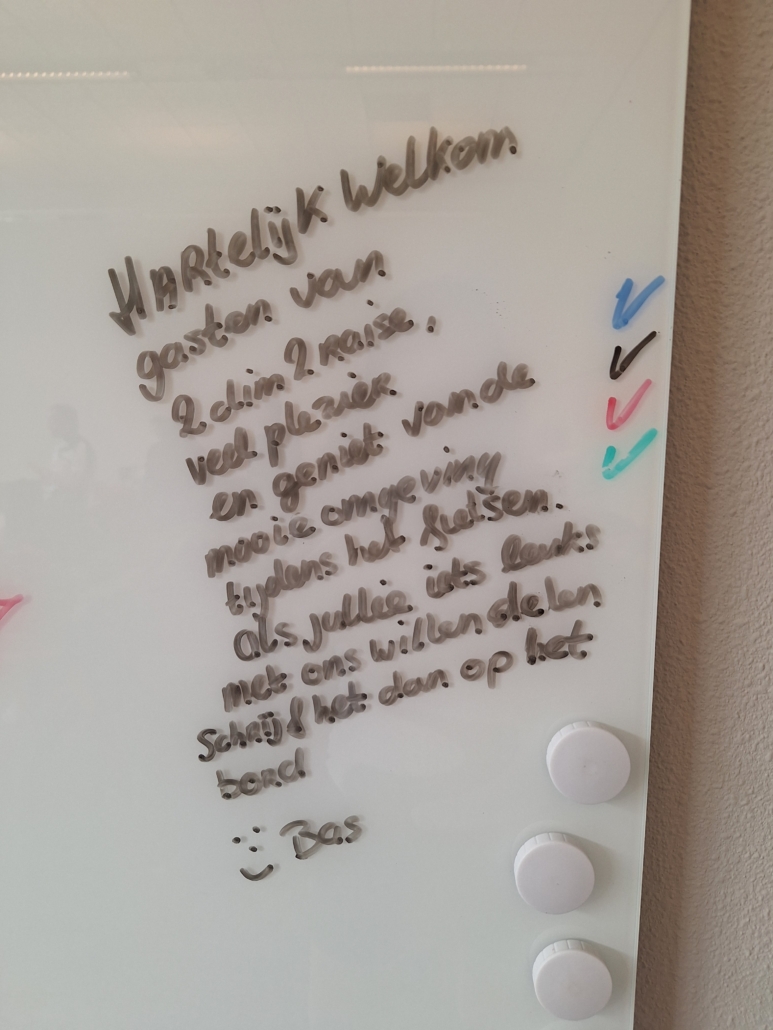 Hartelijk Welkom
gasten van
2 dim 2 raise.
veel plezier
en geniet van de
mooie omgeving
tijdens het fietsen.
als jullie iets leuks
met ons willen delen
Schrijf het dan op het
bord
:) Bas